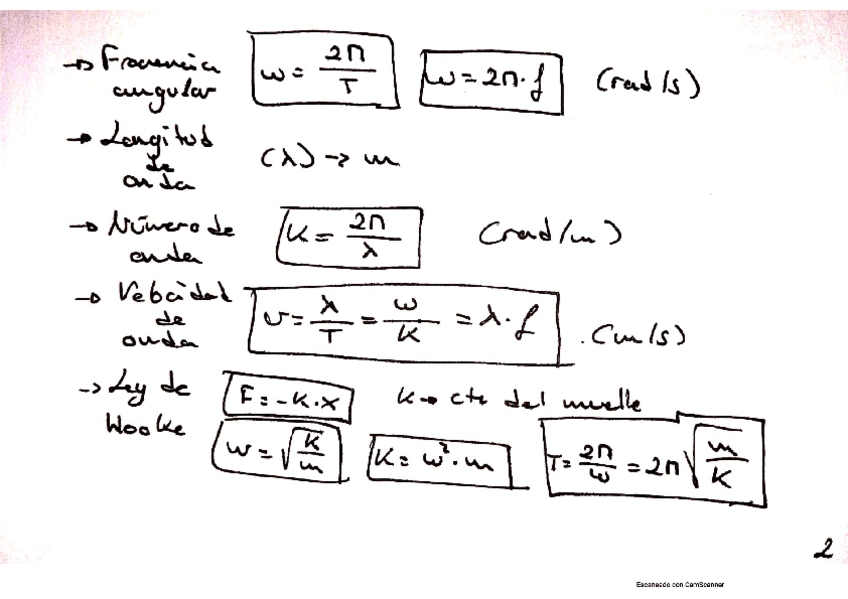 → Frecuencia angular ω = 2π/T ω = 2π·f (rad/s)
→ Longitud de onda (λ) → m
→ Número de onda K = 2π/λ (rad/m)
→ Velocidad de onda v = λ/T = ω/K = λ·f (m/s)
→ Ley de Hooke F = -K·x K → cte del muelle
ω = √(K/m) K = ω²·m T = 2π/ω = 2π√(m/K)
2
Escaneado con CamScanner